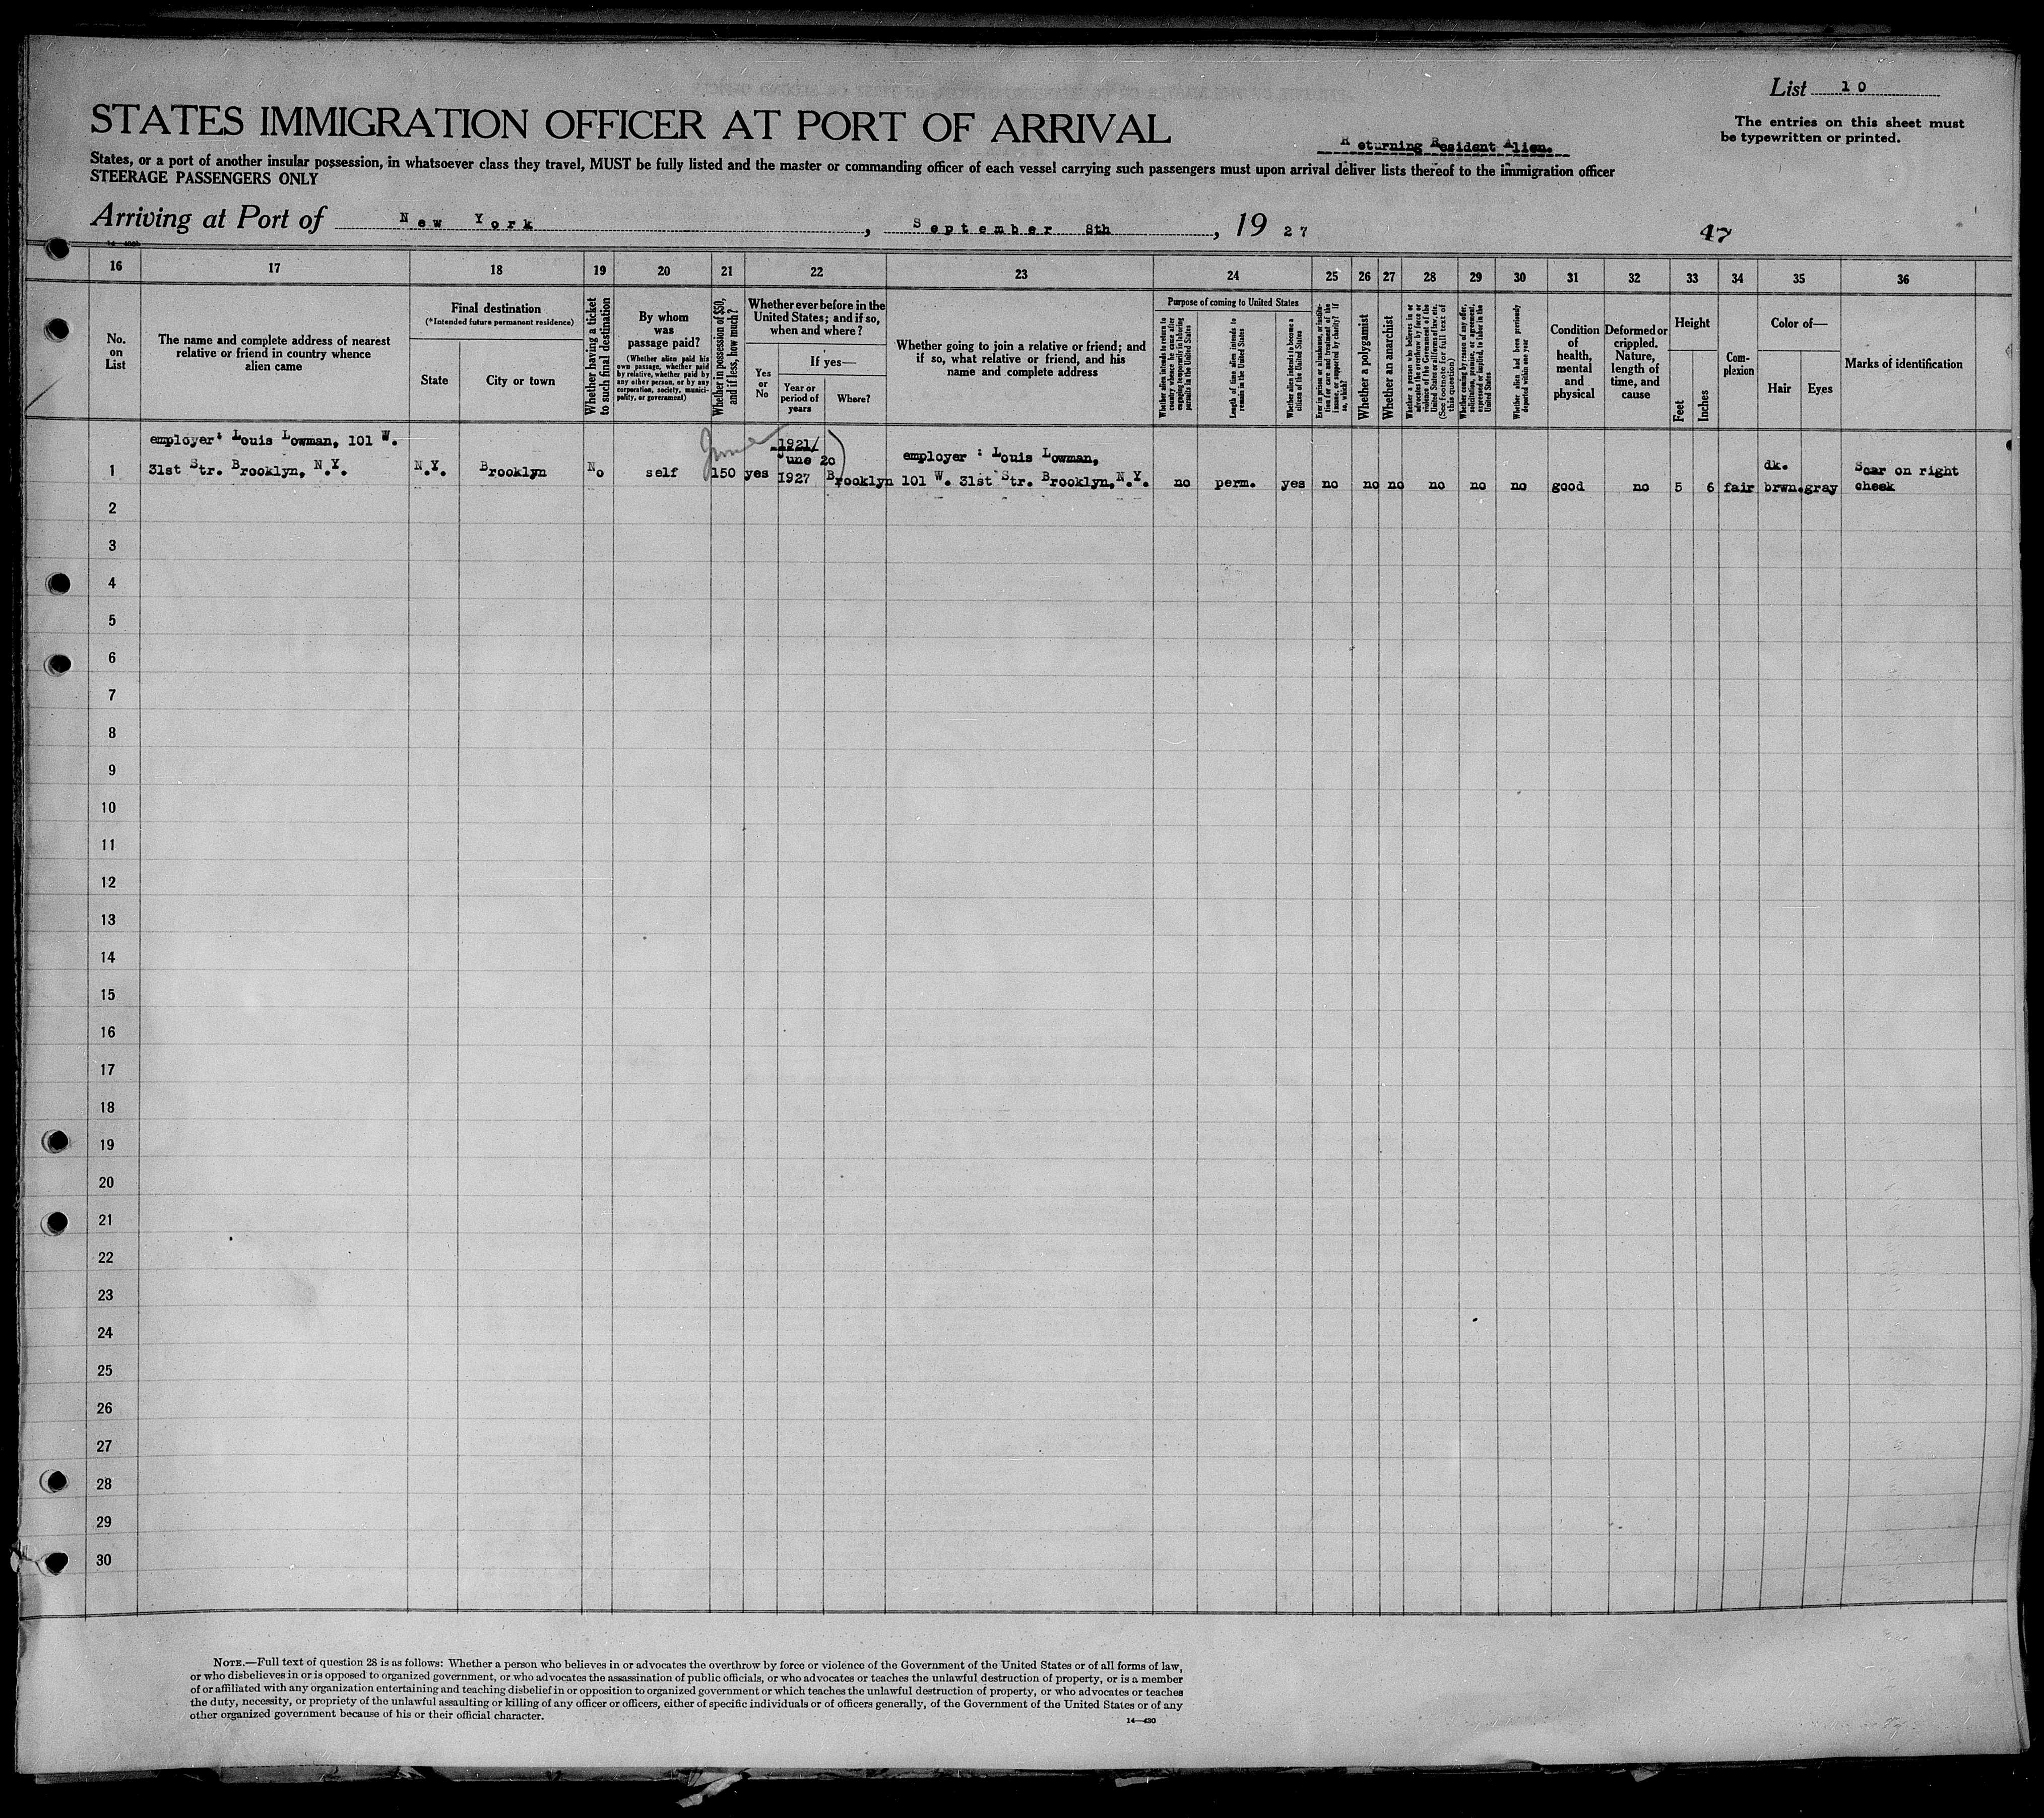 List 10
STATES IMMIGRATION OFFICER AT PORT OF ARRIVAL
The entries on this sheet must
be typewritten or printed.
Returning Resident Alien.
States, or a port of another insular possession, in whatsoever class they travel, MUST be fully listed and the master or commanding officer of each vessel carrying such passengers must upon arrival deliver lists thereof to the immigration officer
STEERAGE PASSENGERS ONLY
Arriving at Port of New York, September 8th, 1927
47
16 17 18 19 20 21 22 23 24 25 26 27 28 29 30 31 32 33 34 35 36
No.
on
List
The name and complete address of nearest
relative or friend in country whence
alien came
Final destination
(*Intended future permanent residence)
State
City or town
Whether having a ticket
to such final destination
By whom
was
passage paid?
(Whether alien paid his
own passage, whether paid
by relative, whether paid by
any other person, or by any
corporation, society, munici-
pality, or government)
Whether in possession of $50,
and if less, how much?
Whether ever before in the
United States; and if so,
when and where?
Yes
or
No
If yes—
Year or
period of
years
Where?
Whether going to join a relative or friend; and
if so, what relative or friend, and his
name and complete address
Purpose of coming to United States
Whether alien intends to return to
country whence he came after
engaging temporarily in laboring
pursuits in the United States
Length of time alien intends to
remain in the United States
Whether alien intends to become a
citizen of the United States
Ever in prison or almshouse, or institu-
tion for care and treatment of the
insane, or supported by charity? If
so, which?
Whether a polygamist
Whether an anarchist
Whether a person who believes in or
advocates the overthrow by force or
violence of the Government of the
United States or all forms of law, etc.
(See footnote for full text of
this question)
Whether coming by reason of any offer,
solicitation, promise, or agreement,
expressed or implied, to labor in the
United States
Whether alien had been previously
deported within one year
Condition
of
health,
mental
and
physical
Deformed or
crippled.
Nature,
length of
time, and
cause
Height
Feet
Inches
Com-
plexion
Color of—
Hair
Eyes
Marks of identification
employer: Louis Lowman, 101 W.
June
1921/
1 31st Str. Brooklyn, N.Y. N.Y. Brooklyn No self 150 yes June 20
1927 Brooklyn
employer : Louis Lowman,
101 W. 31st Str. Brooklyn, N.Y. no perm. yes no no no no no no good no 5 6 fair
dk.
brwn. gray
Scar on right
cheek
2
3
4
5
6
7
8
9
10
11
12
13
14
15
16
17
18
19
20
21
22
23
24
25
26
27
28
29
30
NOTE.—Full text of question 28 is as follows: Whether a person who believes in or advocates the overthrow by force or violence of the Government of the United States or of all forms of law,
or who disbelieves in or is opposed to organized government, or who advocates the assassination of public officials, or who advocates or teaches the unlawful destruction of property, or is a member
of or affiliated with any organization entertaining and teaching disbelief in or opposition to organized government or which teaches the unlawful destruction of property, or who advocates or teaches
the duty, necessity, or propriety of the unlawful assaulting or killing of any officer or officers, either of specific individuals or of officers generally, of the Government of the United States or of any
other organized government because of his or their official character.
14—430